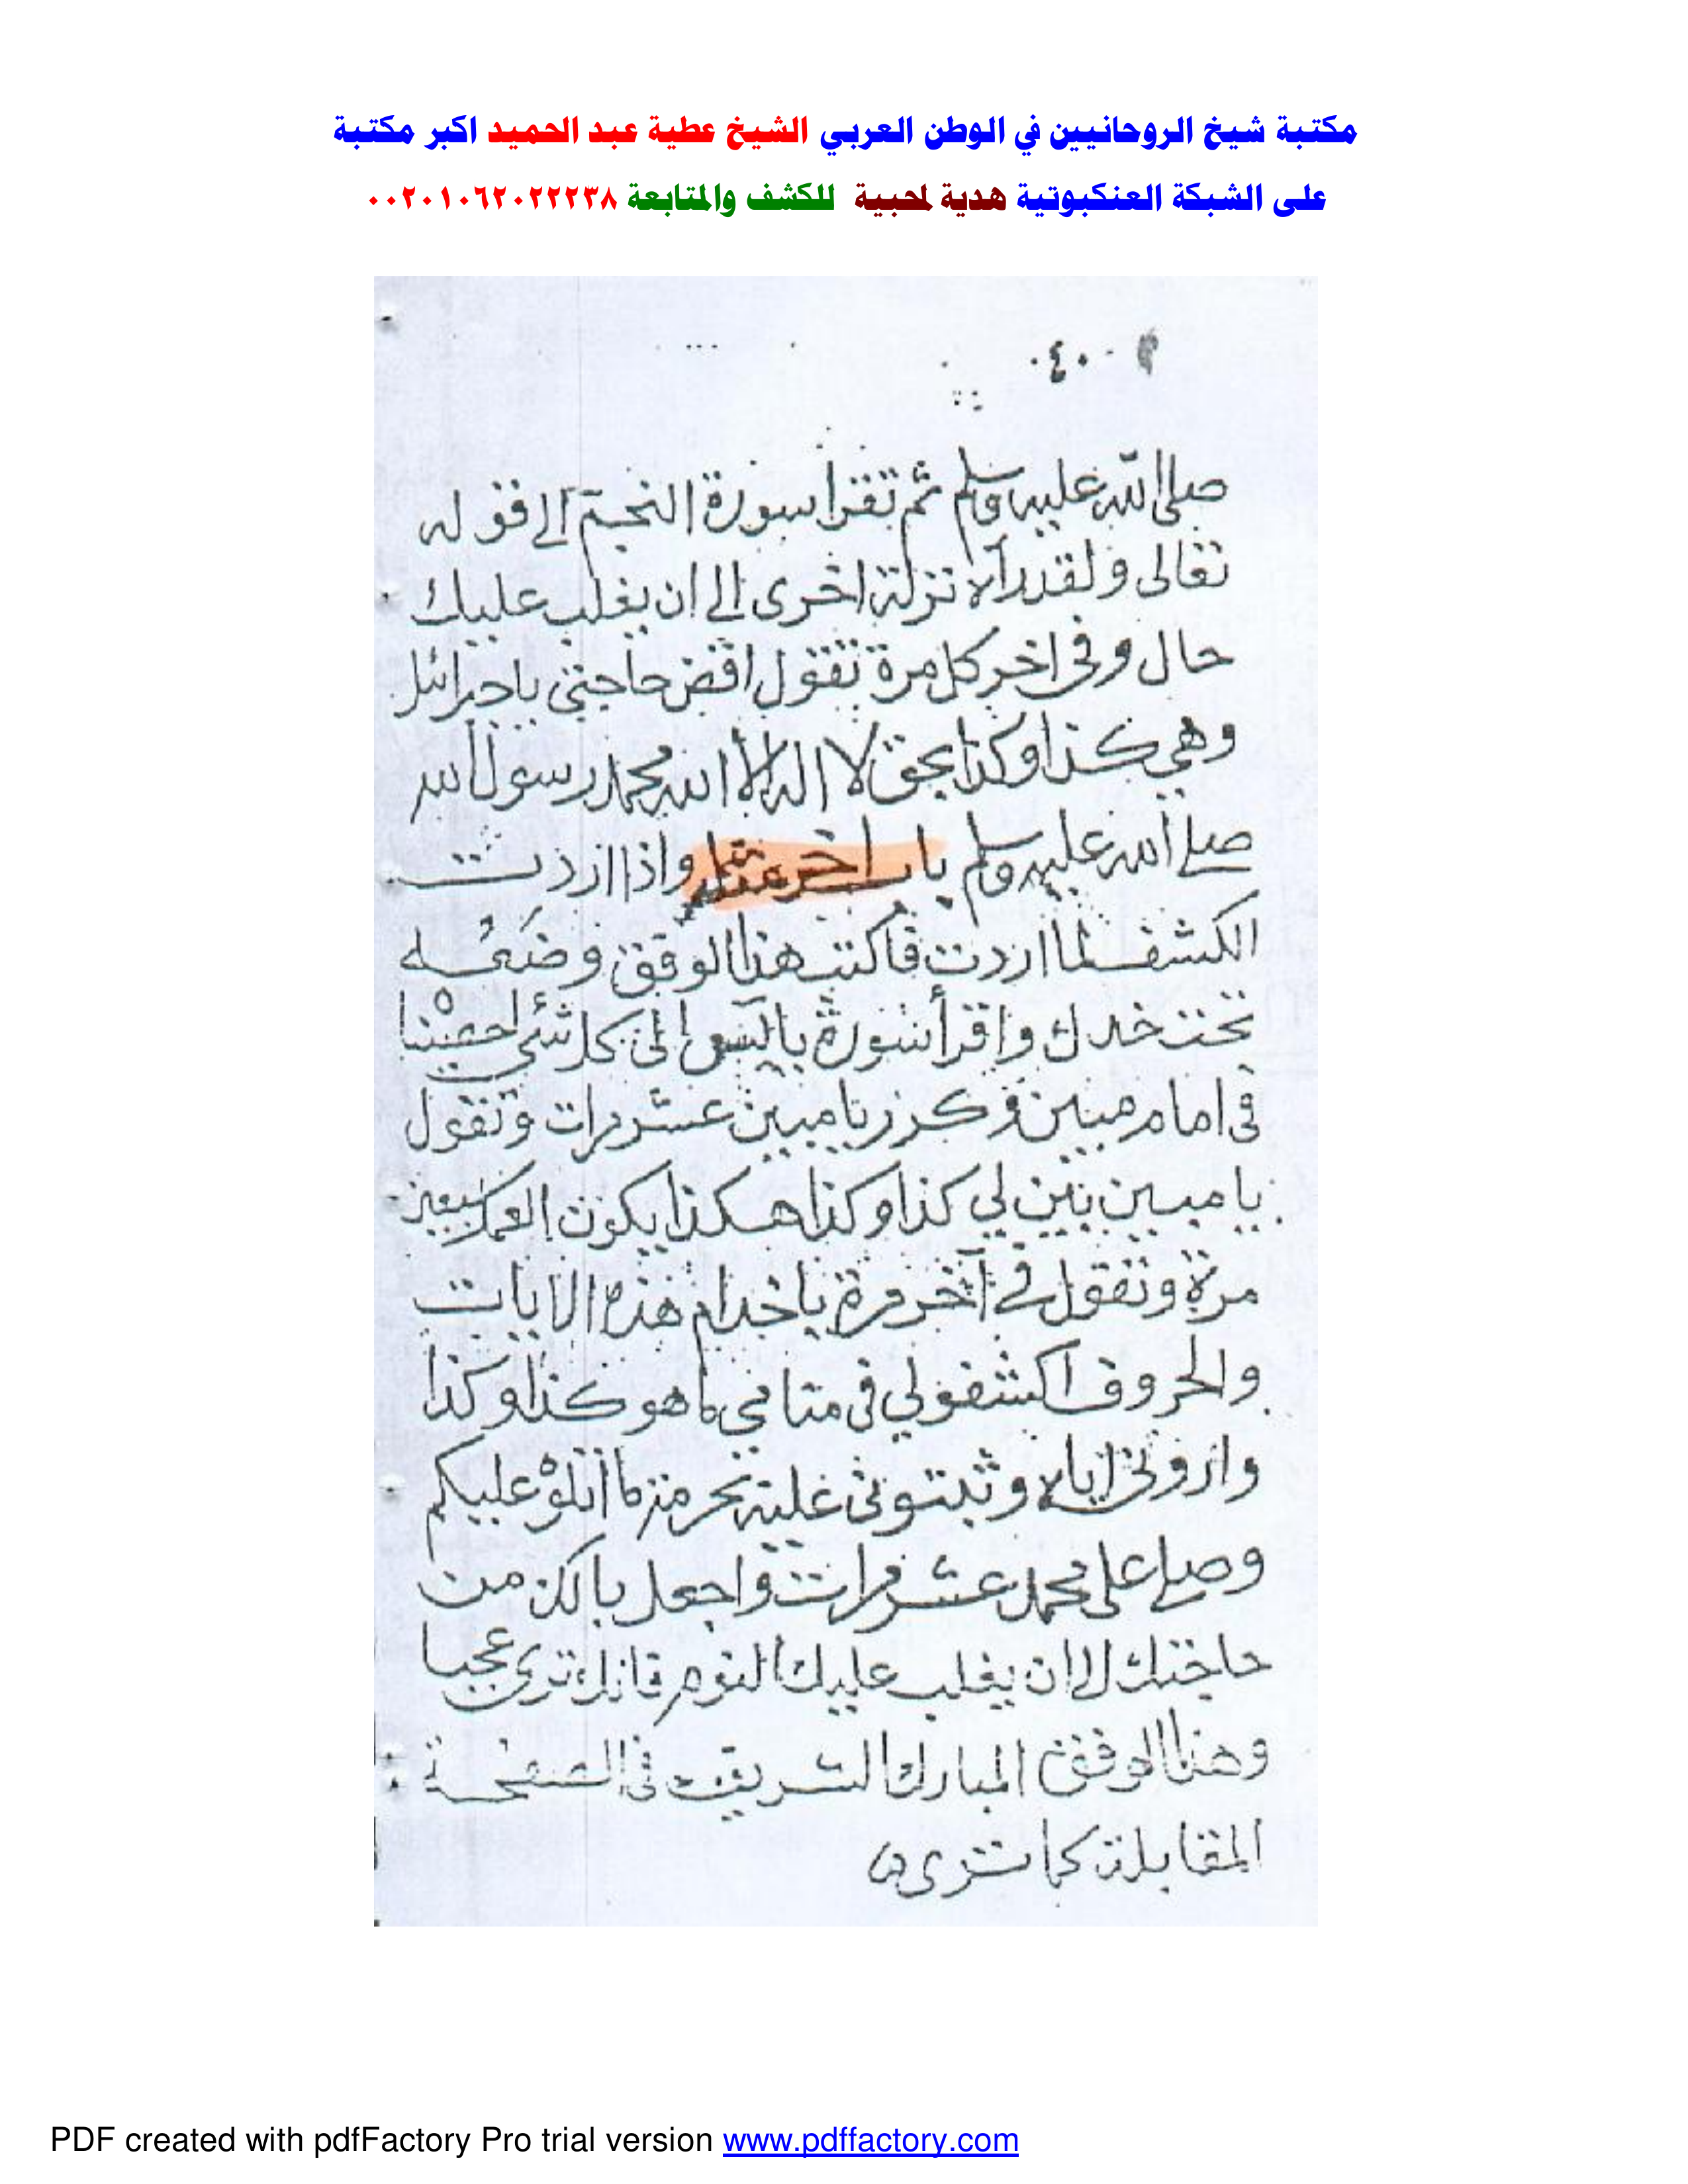 مكتبة شيخ الروحانيين في الوطن العربي الشيخ عطية عبد الحميد اكبر مكتبة
على الشبكة العنكبوتية هدية لمحبية للكشف والمتابعة ٠٠٢٠١٠٦٢٠٢٢٢٣٨
٠٤٠
صلى الله عليه وسلم ثم تقرأ سورة النجم الى قوله
تعالى ولقد رآه نزلة اخرى الى ان يغلب عليك
حال وفي اخر كل مرة تقول اقض حاجتي يا جبرائل
وهي كذا وكذا بحق لا اله الا الله محمد رسول الله
صلى الله عليه وسلم باب اخر مثله واذا اردت
الكشف لما اردت فاكتب هذا الوفق وضعه
تحت خدك واقرأ سورة يا الى كل شئ احصيناه
في امام مبين وكرر يا مبين عشر مرات وتقول
يا مبين بين لي كذا وكذا هكذا يكون العمل سبعين
مرة وتقول في آخر مرة يا خدام هذه الايات
والحروف اكشفولي في منامي ما هو كذا وكذا
واروني اياه وثبتوني عليه بحرمة ما اتلوه عليكم
وصل على محمد عشر مرات واجعل بالك من
حاجتك الى ان يغلب عليك النوم فانك ترى عجبا
وهذا الوفق المبارك الشريف في الصفحة
المقابلة كما ترى
PDF created with pdfFactory Pro trial version www.pdffactory.com